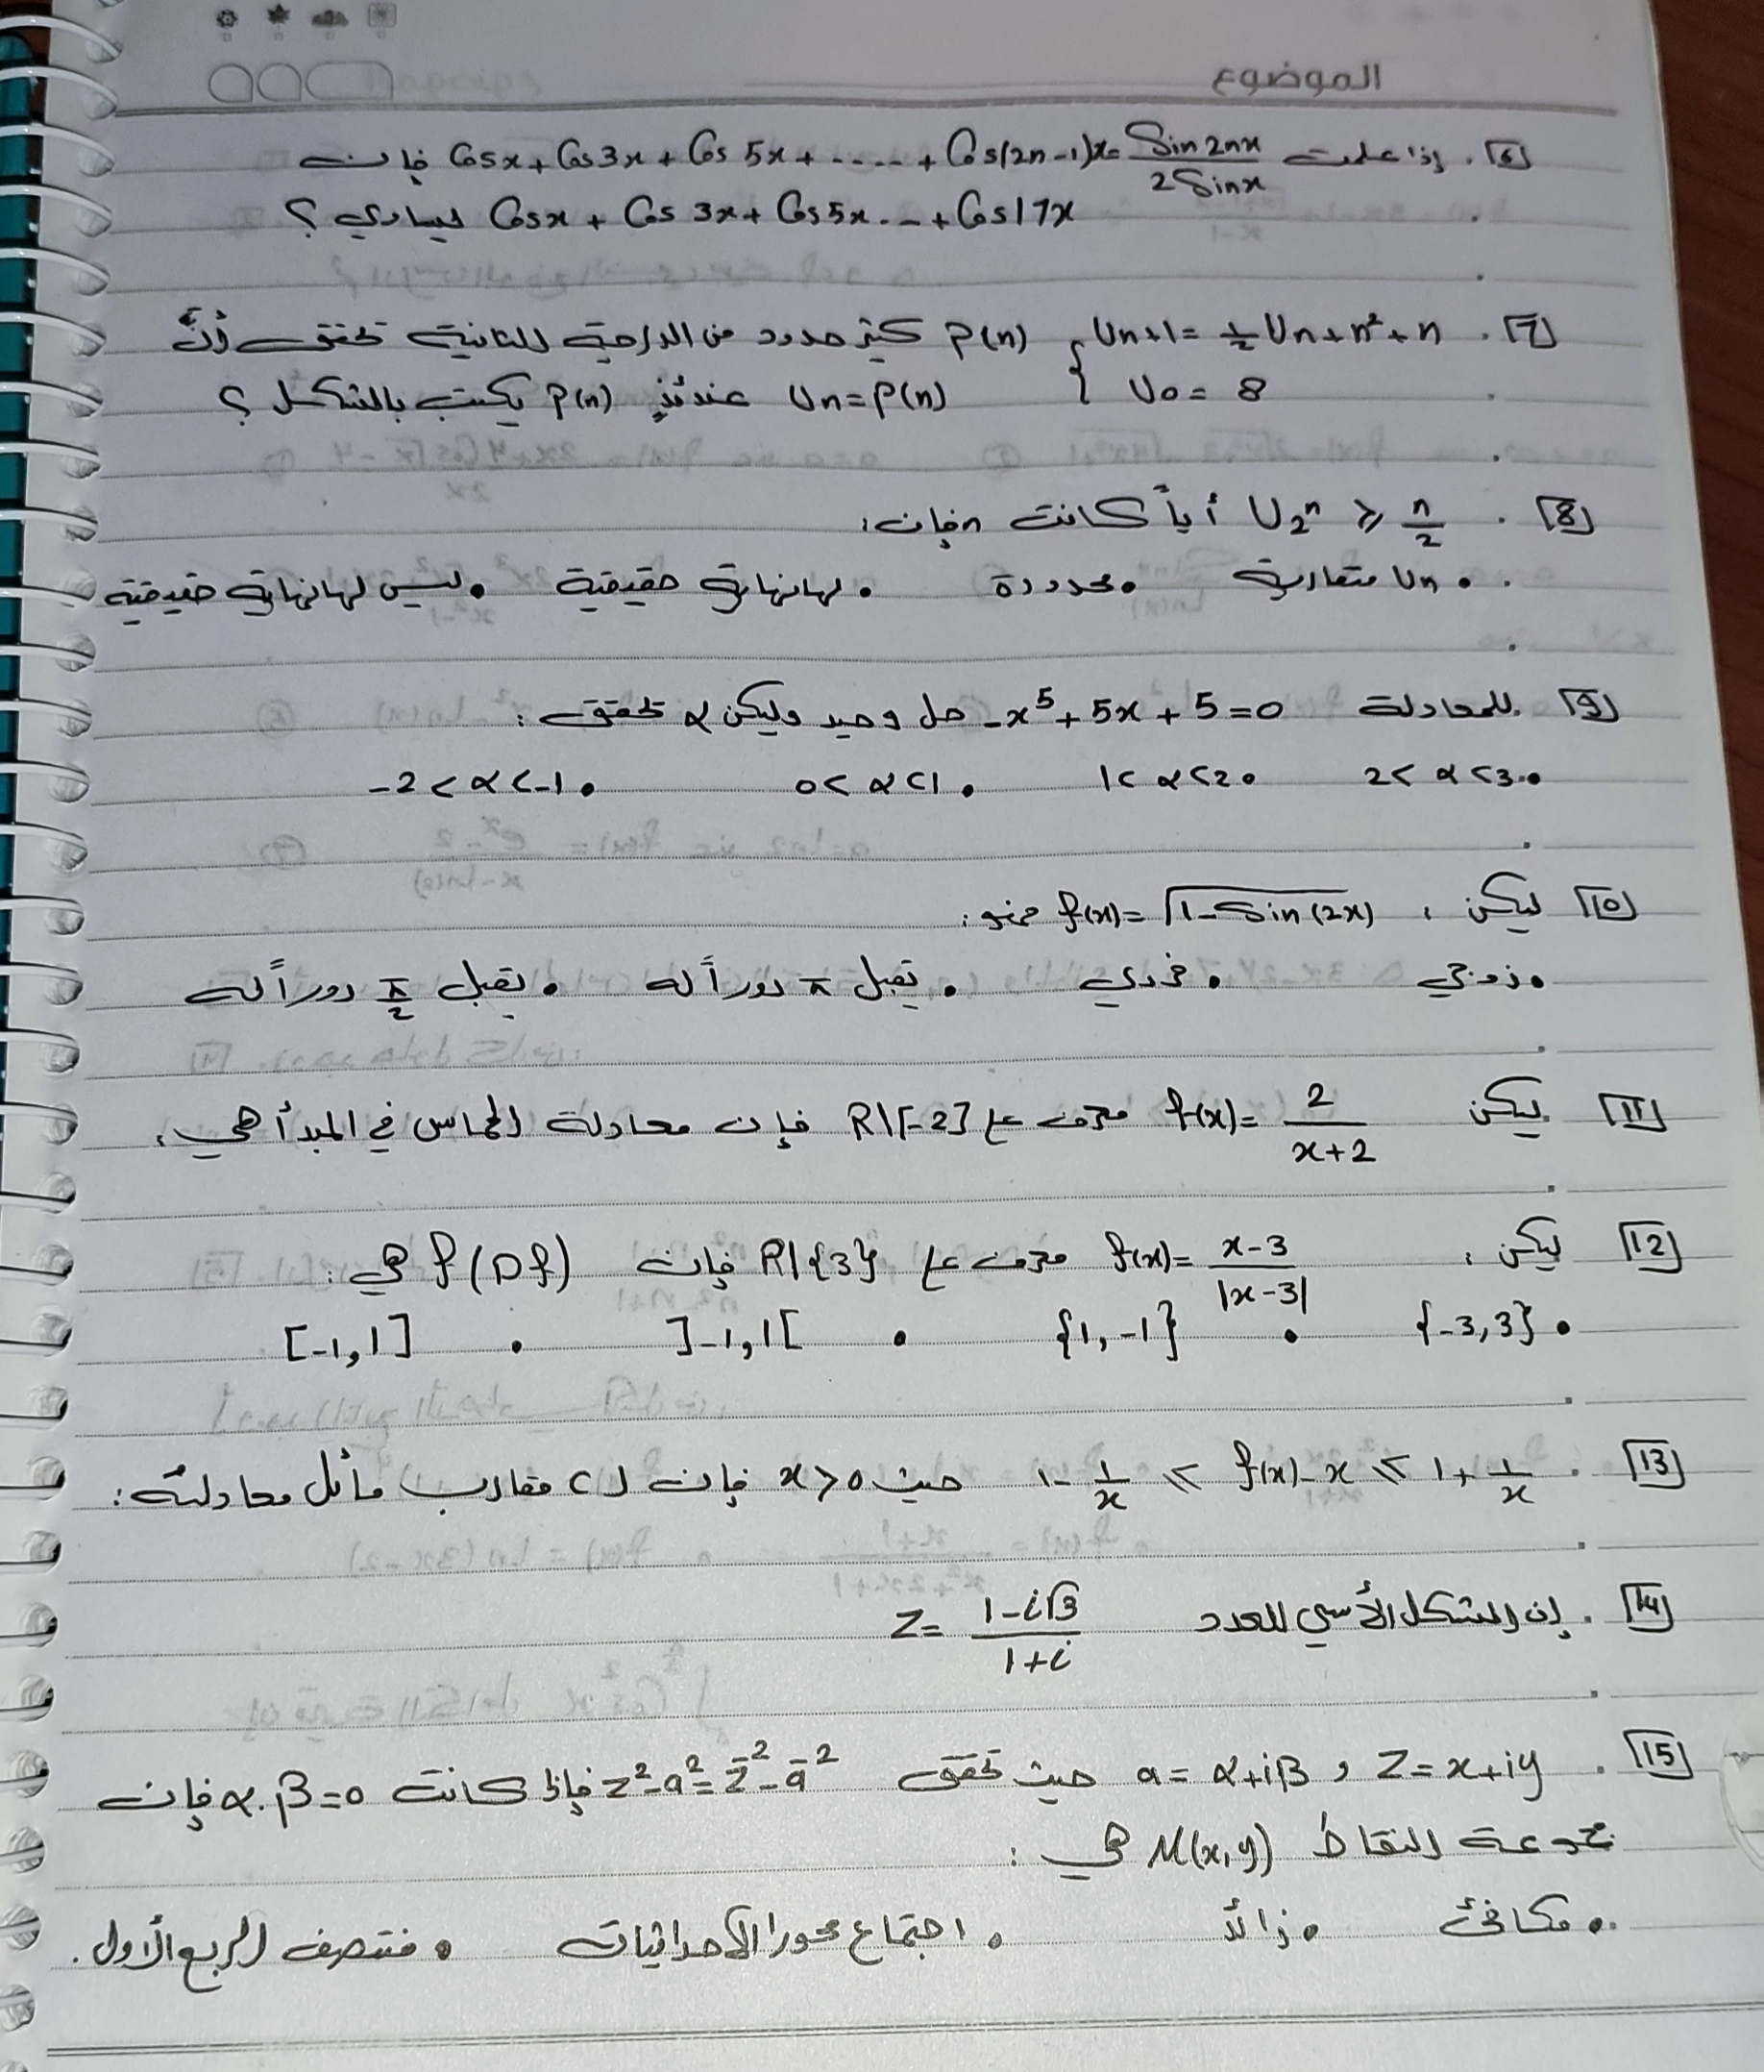 الموضوع
[6]. إذا علمت Cosx + Cos3x + Cos 5x + ..... + Cos(2n-1)x = Sin2nx / 2Sinx فإن
Cosx + Cos 3x + Cos 5x ... + Cos17x يساوي ؟
[7]. { Un+1 = ½ Un + n² + n P(n) كثير حدود من الدرجة الثانية تحقق أنَّ
U0 = 8 Un = P(n) عندئذٍ P(n) يكتب بالشكل ؟
[8]. U2ⁿ ≥ n/2 أياً كانت n فإن:
• Un متقاربة • محدودة • لها نهاية حقيقية • ليس لها نهاية حقيقية
[9] للمعادلة -x⁵ + 5x + 5 = 0 حل وحيد وليكن α تحقق :
• 2 < α < 3 • 1 < α < 2 • 0 < α < 1 • -2 < α < -1
[10] ليكن : f(x) = √(1 - Sin(2x)) فهو :
• زوجي • فردي • تقبل π دوراً له • تقبل π/2 دوراً له
[11] ليكن f(x) = 2 / x+2 معرف على R\[-2] فإن معادلة المماس في المبدأ هي :
[12] ليكن : f(x) = x-3 / |x-3| معرف على R\{3} فإن f(Df) هي :
• {-3,3} • {1,-1} • ]-1,1[ • [-1,1]
[13]. 1 - 1/x ≤ f(x) - x ≤ 1 + 1/x حيث x > 0 فإن لـ C مقارب مائل معادلته :
[14]. إن الشكل الأسي للعدد Z = 1-i√3 / 1+i
[15]. Z = x+iy و a = α+iβ حيث تحقق z² - a² = z̄² - ā² فإذا كانت α.β = 0 فإن
مجموعة النقاط M(x,y) هي :
• مكافئ • زائد • اجتماع محورا الإحداثيات • منتصف الربع الأول .